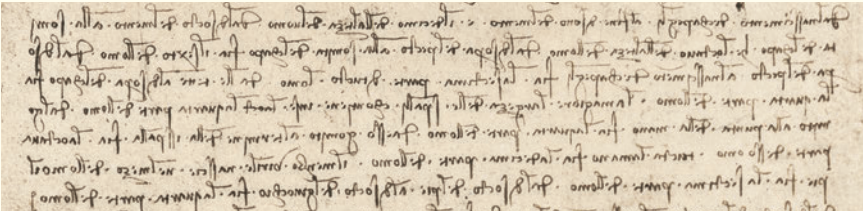 dal nasscimento de chapegli al fine di sotto del mento e il decimo dellalteza delomo dal disocto del mento alla somi
ta del chapo he loctavo dellalteza dellomo dal disopra del pecto alla somita del chapo fia il sexto dellomo dal diso
pra del pecto al nasscimento de chapegli fia la sectima parte di tucto lomo dalle tette al disopra del chapo fia
la quarta parte dellomo la maggiore largheza delle spalli contiene inse la oct la quarta parte dellomo dal go
mito alla punta della mano fia la quarta parte dellomo da esso gomito al termine della isspalla fia la octava
parte desso omo tucta la mano fia la decima parte dellomo il membro virile nasscie nel mezo dellomo il
pie fia la sectima parte dellomo dal disocto del pie al disocto del ginochio fia la quarta parte dellomo